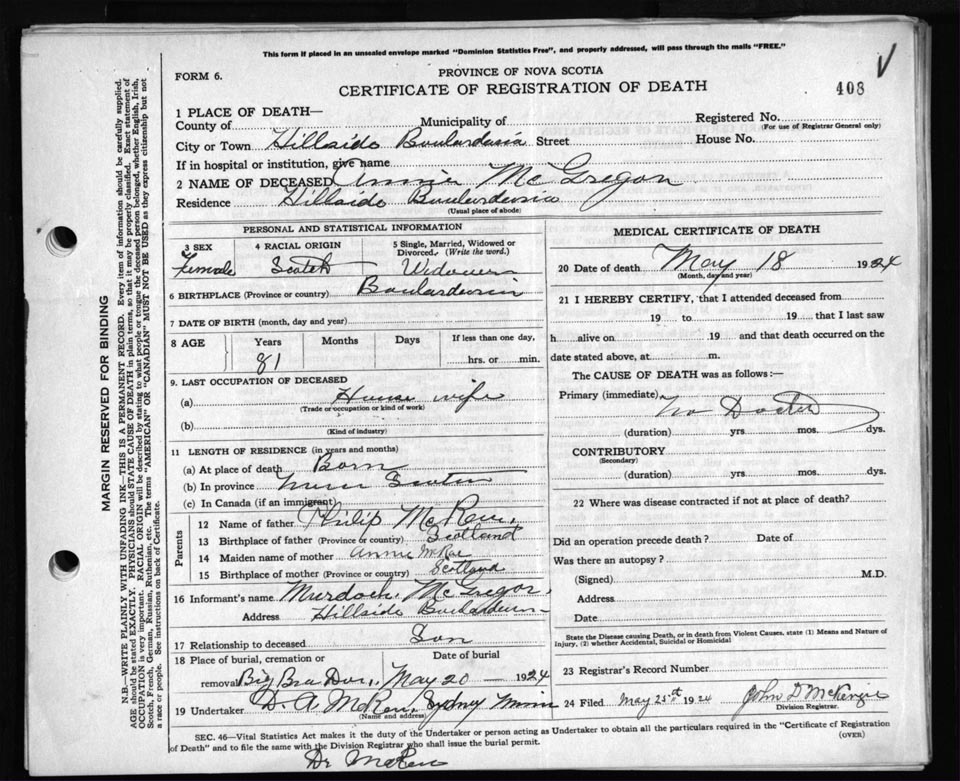 This form if placed in an unsealed envelope marked "Dominion Statistics Free", and properly addressed, will pass through the mails "FREE."
FORM 6.
PROVINCE OF NOVA SCOTIA
CERTIFICATE OF REGISTRATION OF DEATH
408
1 PLACE OF DEATH—
County of Municipality of Registered No.
(For use of Registrar General only)
City or Town Hillside Boulardarie Street House No.
If in hospital or institution, give name
2 NAME OF DECEASED Annie McGregor
Residence Hillside Boularderie
(Usual place of abode)
PERSONAL AND STATISTICAL INFORMATION
3 SEX 4 RACIAL ORIGIN 5 Single, Married, Widowed or Divorced. (Write the word.)
Female Scotch Widower
6 BIRTHPLACE (Province or country) Boularderie
7 DATE OF BIRTH (month, day and year)
8 AGE Years Months Days If less than one day,
81 hrs. or min.
9. LAST OCCUPATION OF DECEASED
(a) House wife
(Trade or occupation or kind of work)
(b)
(Kind of industry)
11 LENGTH OF RESIDENCE (in years and months)
(a) At place of death Born
(b) In province Nova Scotia
(c) In Canada (if an immigrant)
Parents
12 Name of father Philip McRae
13 Birthplace of father (Province or country) Scotland
14 Maiden name of mother Annie McRae
15 Birthplace of mother (Province or country) Scotland
16 Informant's name Murdoch McGregor
Address Hillside Boularderie
17 Relationship to deceased Son
18 Place of burial, cremation or removal Date of burial
Big Bra Dor, May 20 — 1924
19 Undertaker D. A McRae, Sydney Mines
(Name and address)
MEDICAL CERTIFICATE OF DEATH
20 Date of death May 18 1924
(Month, day and year)
21 I HEREBY CERTIFY, that I attended deceased from
19 to 19 that I last saw
h alive on 19 and that death occurred on the
date stated above, at m.
The CAUSE OF DEATH was as follows:—
Primary (immediate) No Doctor
(duration) yrs mos. dys.
CONTRIBUTORY
(Secondary)
(duration) yrs. mos. dys.
22 Where was disease contracted if not at place of death?
Did an operation precede death? Date of
Was there an autopsy?
(Signed) M.D.
Address
Date
State the Disease causing Death, or in death from Violent Causes, state (1) Means and Nature of Injury, (2) whether Accidental, Suicidal or Homicidal
23 Registrar's Record Number
24 Filed May 25st 1924 John D McKenzie
Division Registrar.
SEC. 46—Vital Statistics Act makes it the duty of the Undertaker or person acting as Undertaker to obtain all the particulars required in the "Certificate of Registration
of Death" and to file the same with the Division Registrar who shall issue the burial permit.
(OVER)
Dr McRae
MARGIN RESERVED FOR BINDING
N.B.—WRITE PLAINLY WITH UNFADING INK—THIS IS A PERMANENT RECORD. Every item of information should be carefully supplied.
AGE should be stated EXACTLY. PHYSICIANS should STATE CAUSE OF DEATH in plain terms, so that it may be properly classified. Exact statement of
OCCUPATION is very important. RACIAL ORIGIN will be described by stating to what people or tongue the deceased person belonged, whether English, Irish,
Scotch, French, German, Russian, Ruthenian, etc. The terms "AMERICAN" OR "CANADIAN" MUST NOT BE USED as they express citizenship but not
a race or people. See instructions on back of Certificate.